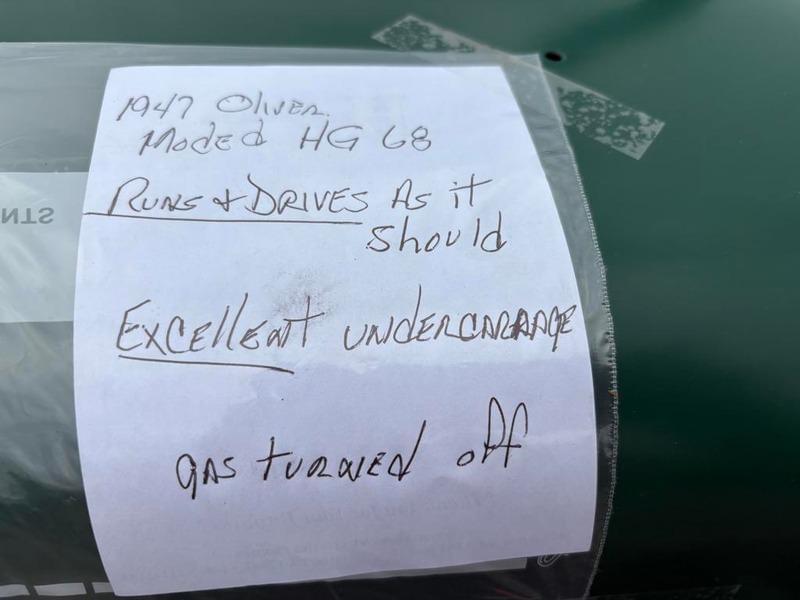 1947 Oliver
Model HG 68
RUNS & DRIVES As it
should
Excellent UNDERCARRAGE
gas turned off